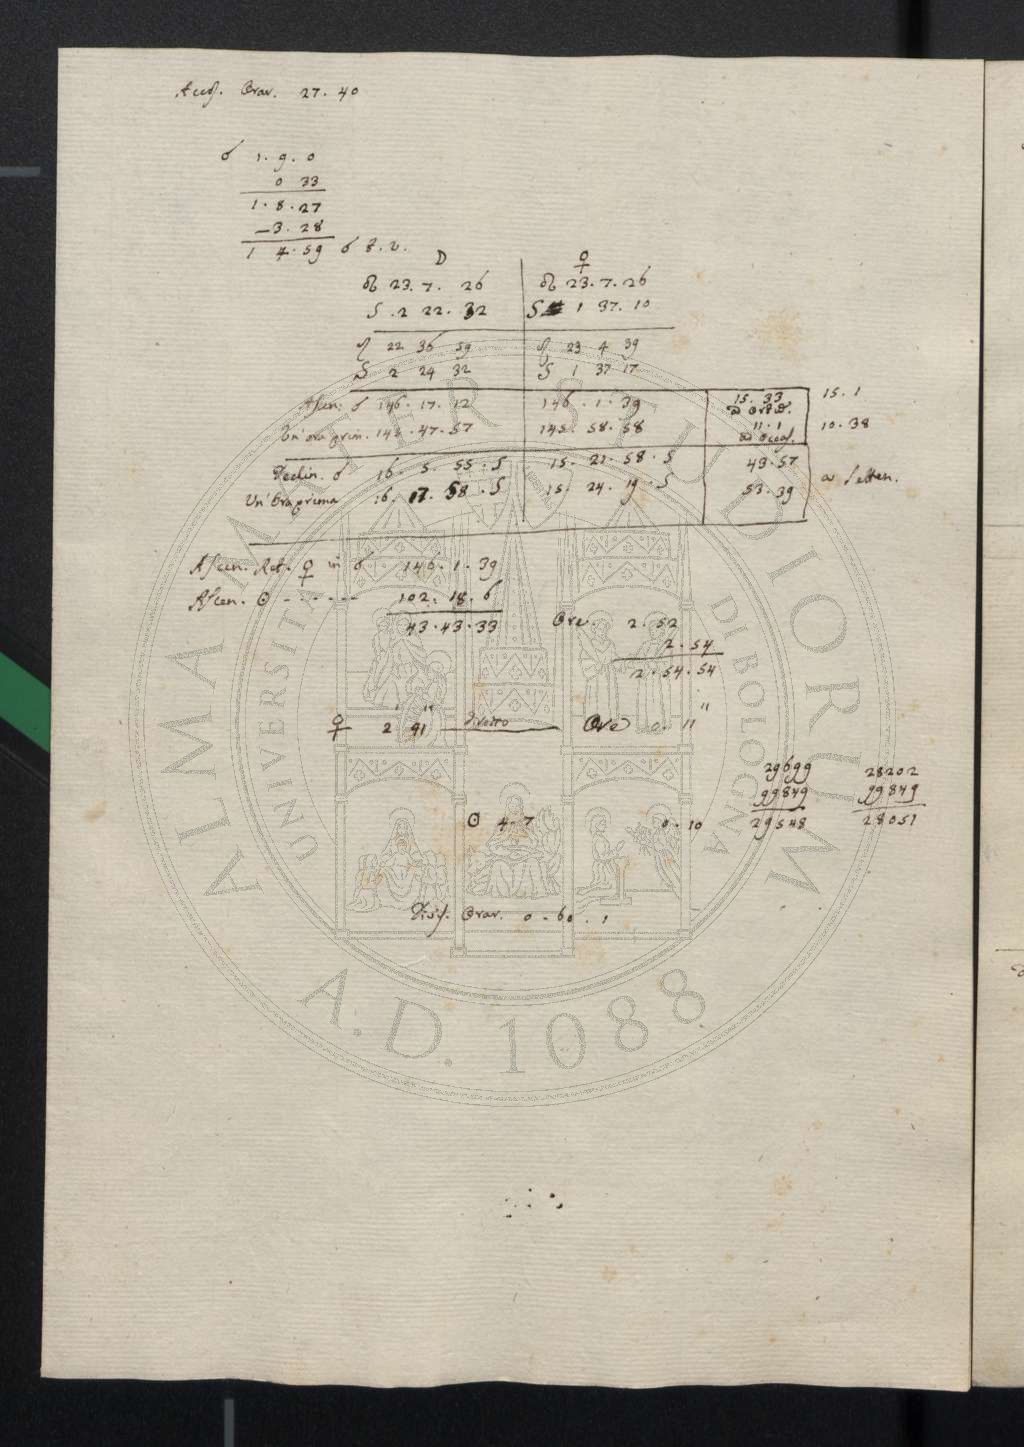 Acces. Orar. 27. 40
☌ 1. 9. 0
0 33
1. 8. 27
–3. 28
1 4. 59 ☌
☽ ♀
♌ 23. 7. 26 ♌ 23. 7. 26
S. 2 22. 32 S 1 37. 10
♌ 22 36 59 ♌ 23 4 39
S 2 24 32 S 1 37 17
Ascen. ☌ 146. 17. 12 146. 1. 39 15. 33 15. 1
ad Orie.
Un'ora prim. 145. 47. 57 145. 58. 58 11. 1 10. 38
ad Occas.
Declin. ☌ 16. 5. 55. S 15. 21. 58. S 43. 57
Un'Ora prima 16. 17. 58. S 15. 24. 19. S 53. 39 a Setten.
Ascen. Ret. ♀ in ☌ 146. 1. 39
Ascen. ☉ - - - - - - 102. 18. 6
43. 43. 33 Ore. 2. 52
2. 54
2. 54. 54
♀ 2 41 diretto Ore 0. 11
29699 28202
99849 99849
29548 28051
☉ 4. 7 0. 10
Disc. Orar. 0. 60. 1
ALMA MATER STUDIORUM
UNIVERSITÀ DI BOLOGNA
A.D. 1088